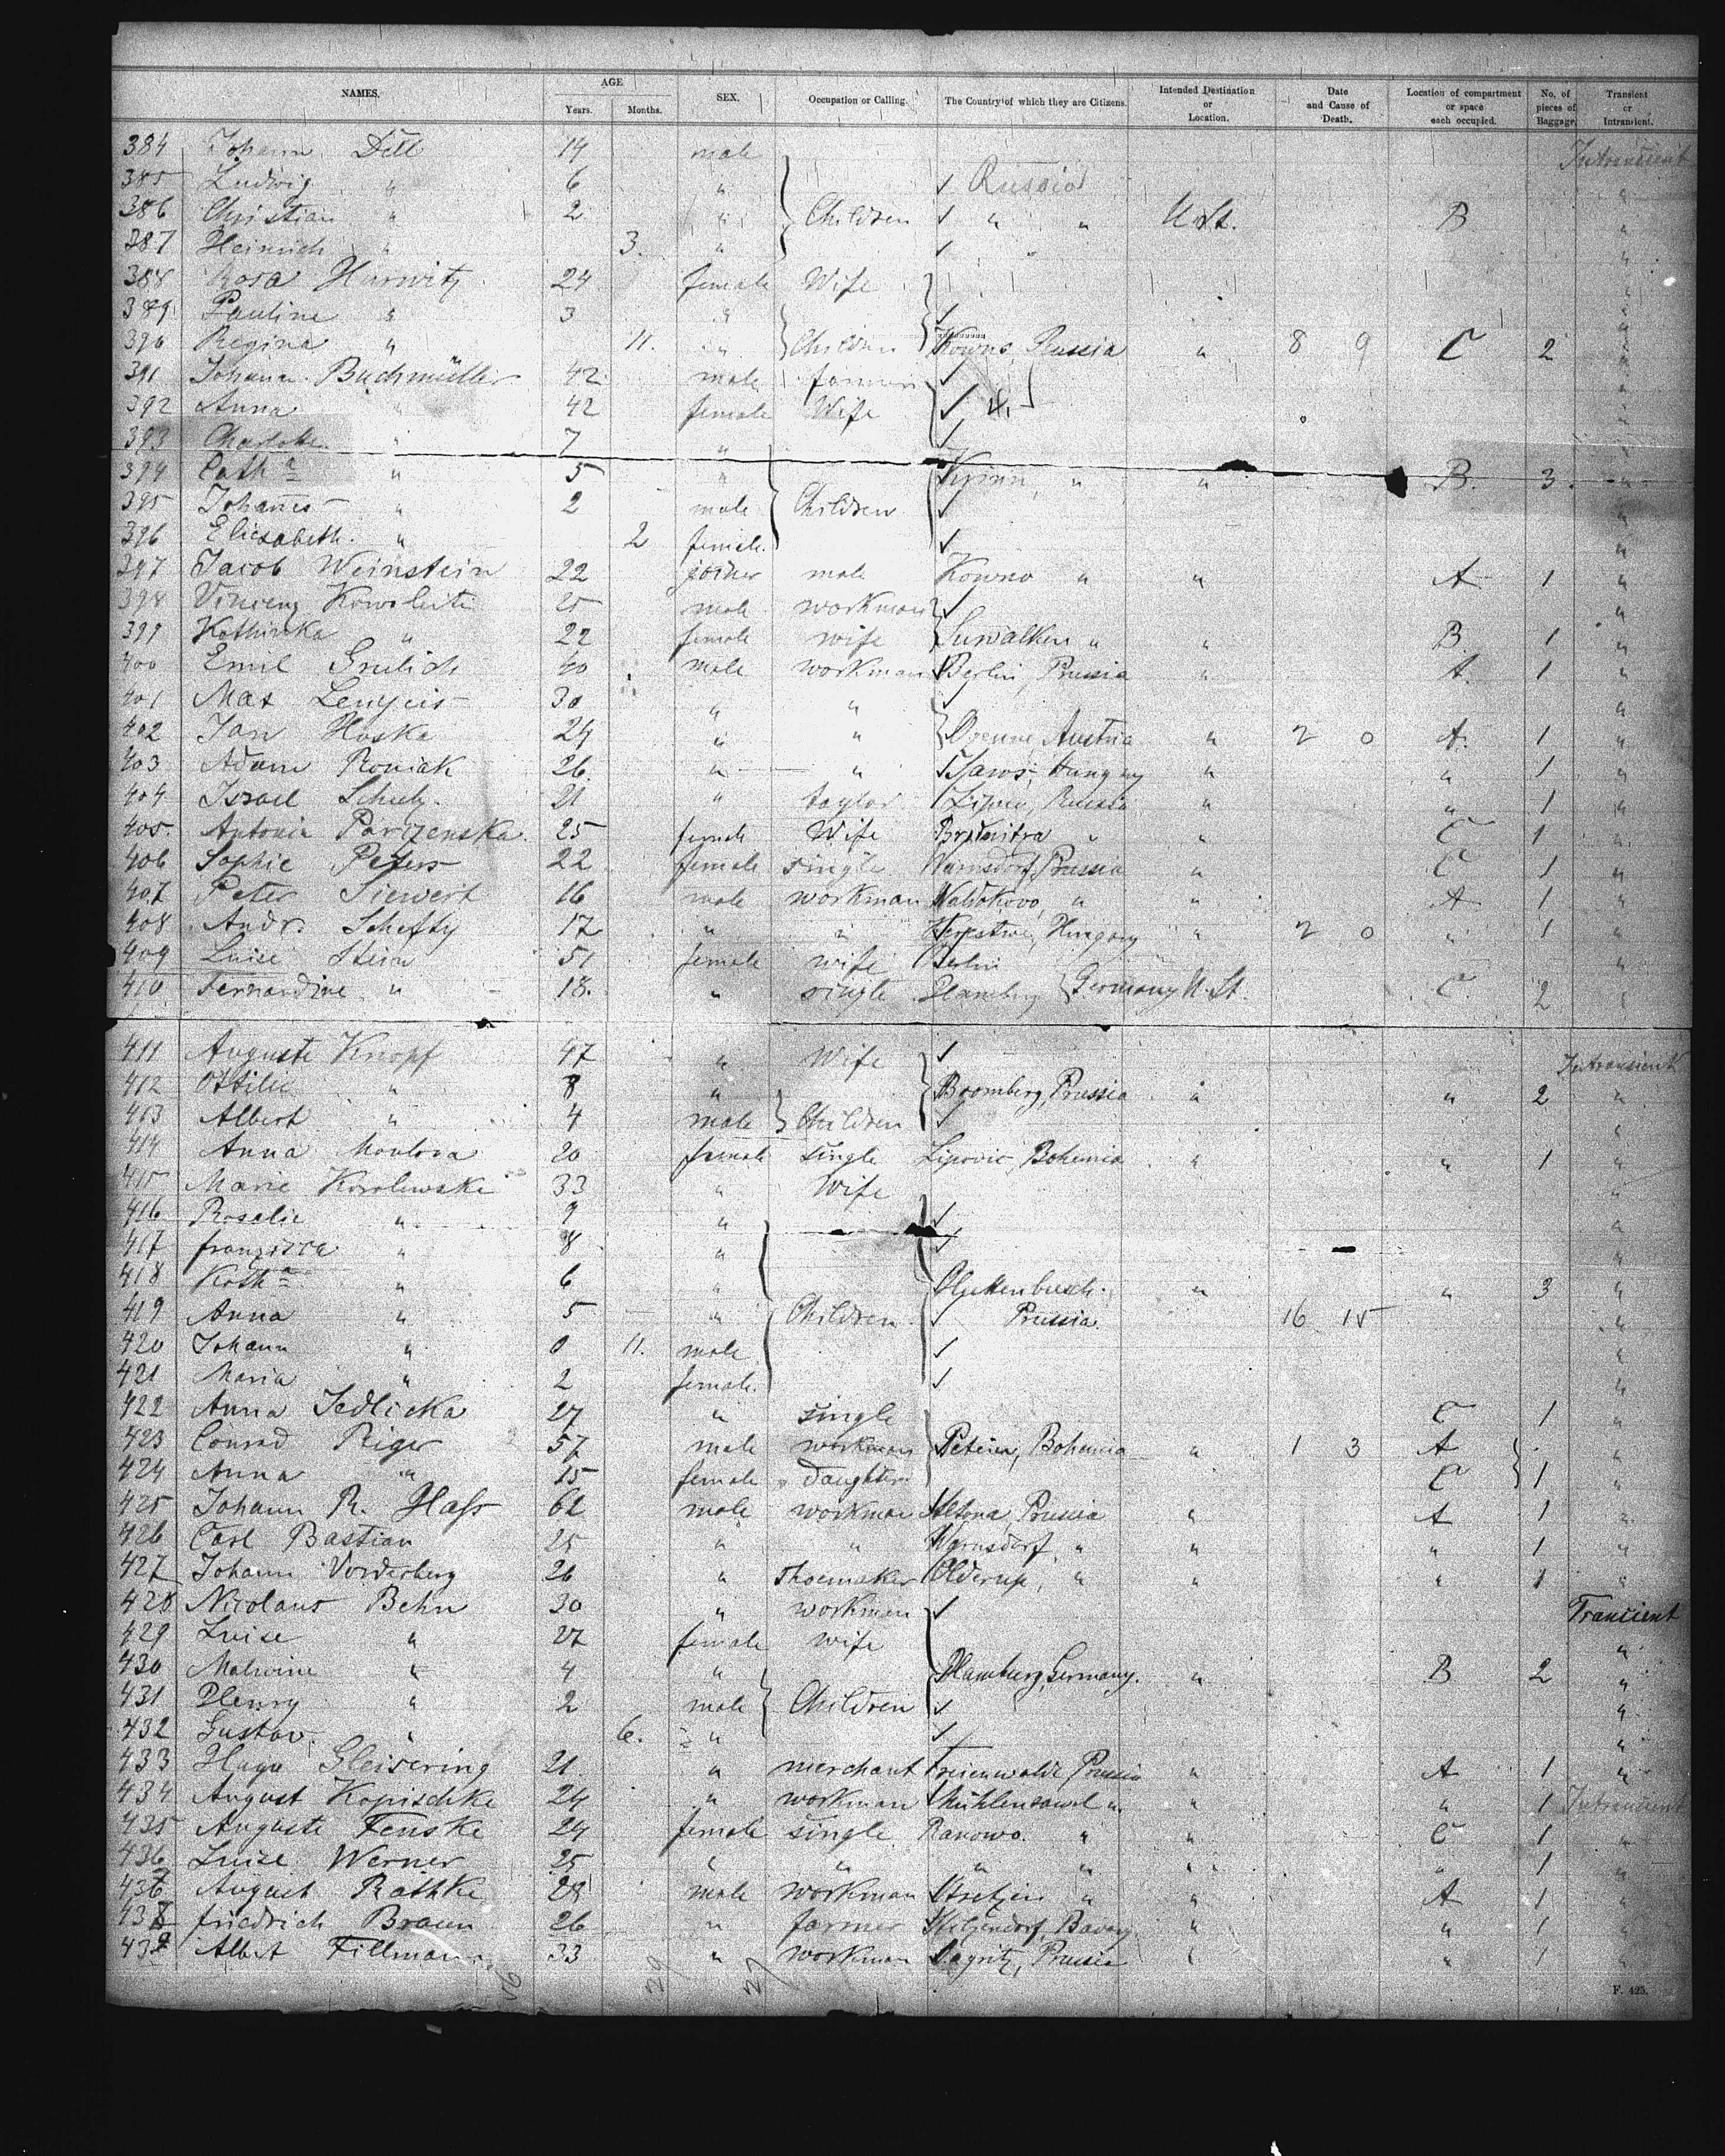 NAMES. AGE Years. Months. SEX. Occupation or Calling. The Country of which they are Citizens. Intended Destination or Location. Date and Cause of Death. Location of compartment or space each occupied. No. of pieces of Baggage. Transient or Intransient.
384 Johann Dill 14 male Intransient
385 Ludwig " 6 " ✓ Russia "
386 Christian " 2 " Children ✓ " " U. St. B "
387 Heinrich " 3. " ✓ " "
388 Rosa Hurwitz 24 female Wife "
389 Pauline " 3 " ✓ "
390 Regina " 11. " Children Kowno, Russia " 8 9 C 2 "
391 Johann Buchmüller 42 male farmer ✓ "
392 Anna " 42 female Wife ✓ "
393 Charlotte " 7 " ✓
394 Cath a " 5 " " " B. 3. "
395 Johannes " 2 male Children ✓ "
396 Eliesabeth. " 2 female. ✓ "
397 Jacob Weinstein 22 joiner male Kowno " " A 1 "
398 25 male workman ✓ "
399 " 22 female wife Suwalken " " B. 1 "
400 Emil Grulich 40 male workman Berlin, Prussia " A. 1 "
401 Max 30 " " ✓ "
402 Jan Hoska 24 " " Austria " 2 0 A. 1 "
403 Adam Roniak 26. " " Hungary " " 1 "
404 Israel Schulz. 21 " taylor Russia " " 1 "
405. Antonia 25 female Wife " " C 1 "
406 Sophie Peters 22 female single Warnsdorf, Prussia " C 1 "
407 Peter Siewert 16 male workman " " A 1 "
408 Andr. Schefty 17 " " Hungary " 2 0 " 1 "
409 Luise Stein 51 female wife Berlin "
410 Fernardine " 18. " single Hamburg Germany U. St. C 2
411 Auguste Knopf 47 " Wife ✓ Intransient
412 Ottilie " 8 " Bromberg, Prussia " " 2 "
413 Albert " 4 male Children ✓ "
414 Anna 20 female single Lipovic Bohemia " " 1 "
415 Marie Korolewske 33 " Wife "
416 Rosalie " 9 " ✓ "
417 franziska " 8 " ✓ "
418 Kath a " 6 " " " 3 "
419 Anna " 5 " Children ✓ Prussia. 16 15 "
420 Johann " 0 11. male ✓ "
421 Maria " 2 female. ✓ "
422 Anna Jedlicka 27 " single C 1 "
423 Conrad Riger 57 male workman Bohemia " 1 3 A "
424 Anna " 15 female daughter C 1 "
425 Johann R. Hass 62 male workman Altona, Prussia " A 1 "
426 Carl Bastian 25 " " Warnsdorf, " " " 1 "
427 Johann Vorderberg 26 " Shoemaker Olderup, " " " 1 "
428 Nicolaus Behn 30 " workman ✓ Transient
429 Luise " 27 female wife "
430 Malwine " 4 " Hamburg, Germany. " B 2 "
431 Henry " 2 male Children ✓ "
432 Gustav. " 6. " ✓ "
433 Hugo Gleisering 21. " merchant Freienwalde Prussia " A 1 "
434 August Kopischke 24 " workman " " " 1 Intransient
435 Auguste Fenske 24 female single Rakowo. " " C 1 "
436 Luise Werner 25 " " " " " " 1 "
437 August Rathke 28 male workman " " A 1 "
438 friedrich Braun 26 " farmer Bavary " " 1 "
439 Albert Fillmann 33 " workman Prussia " " 1 "
F. 425.